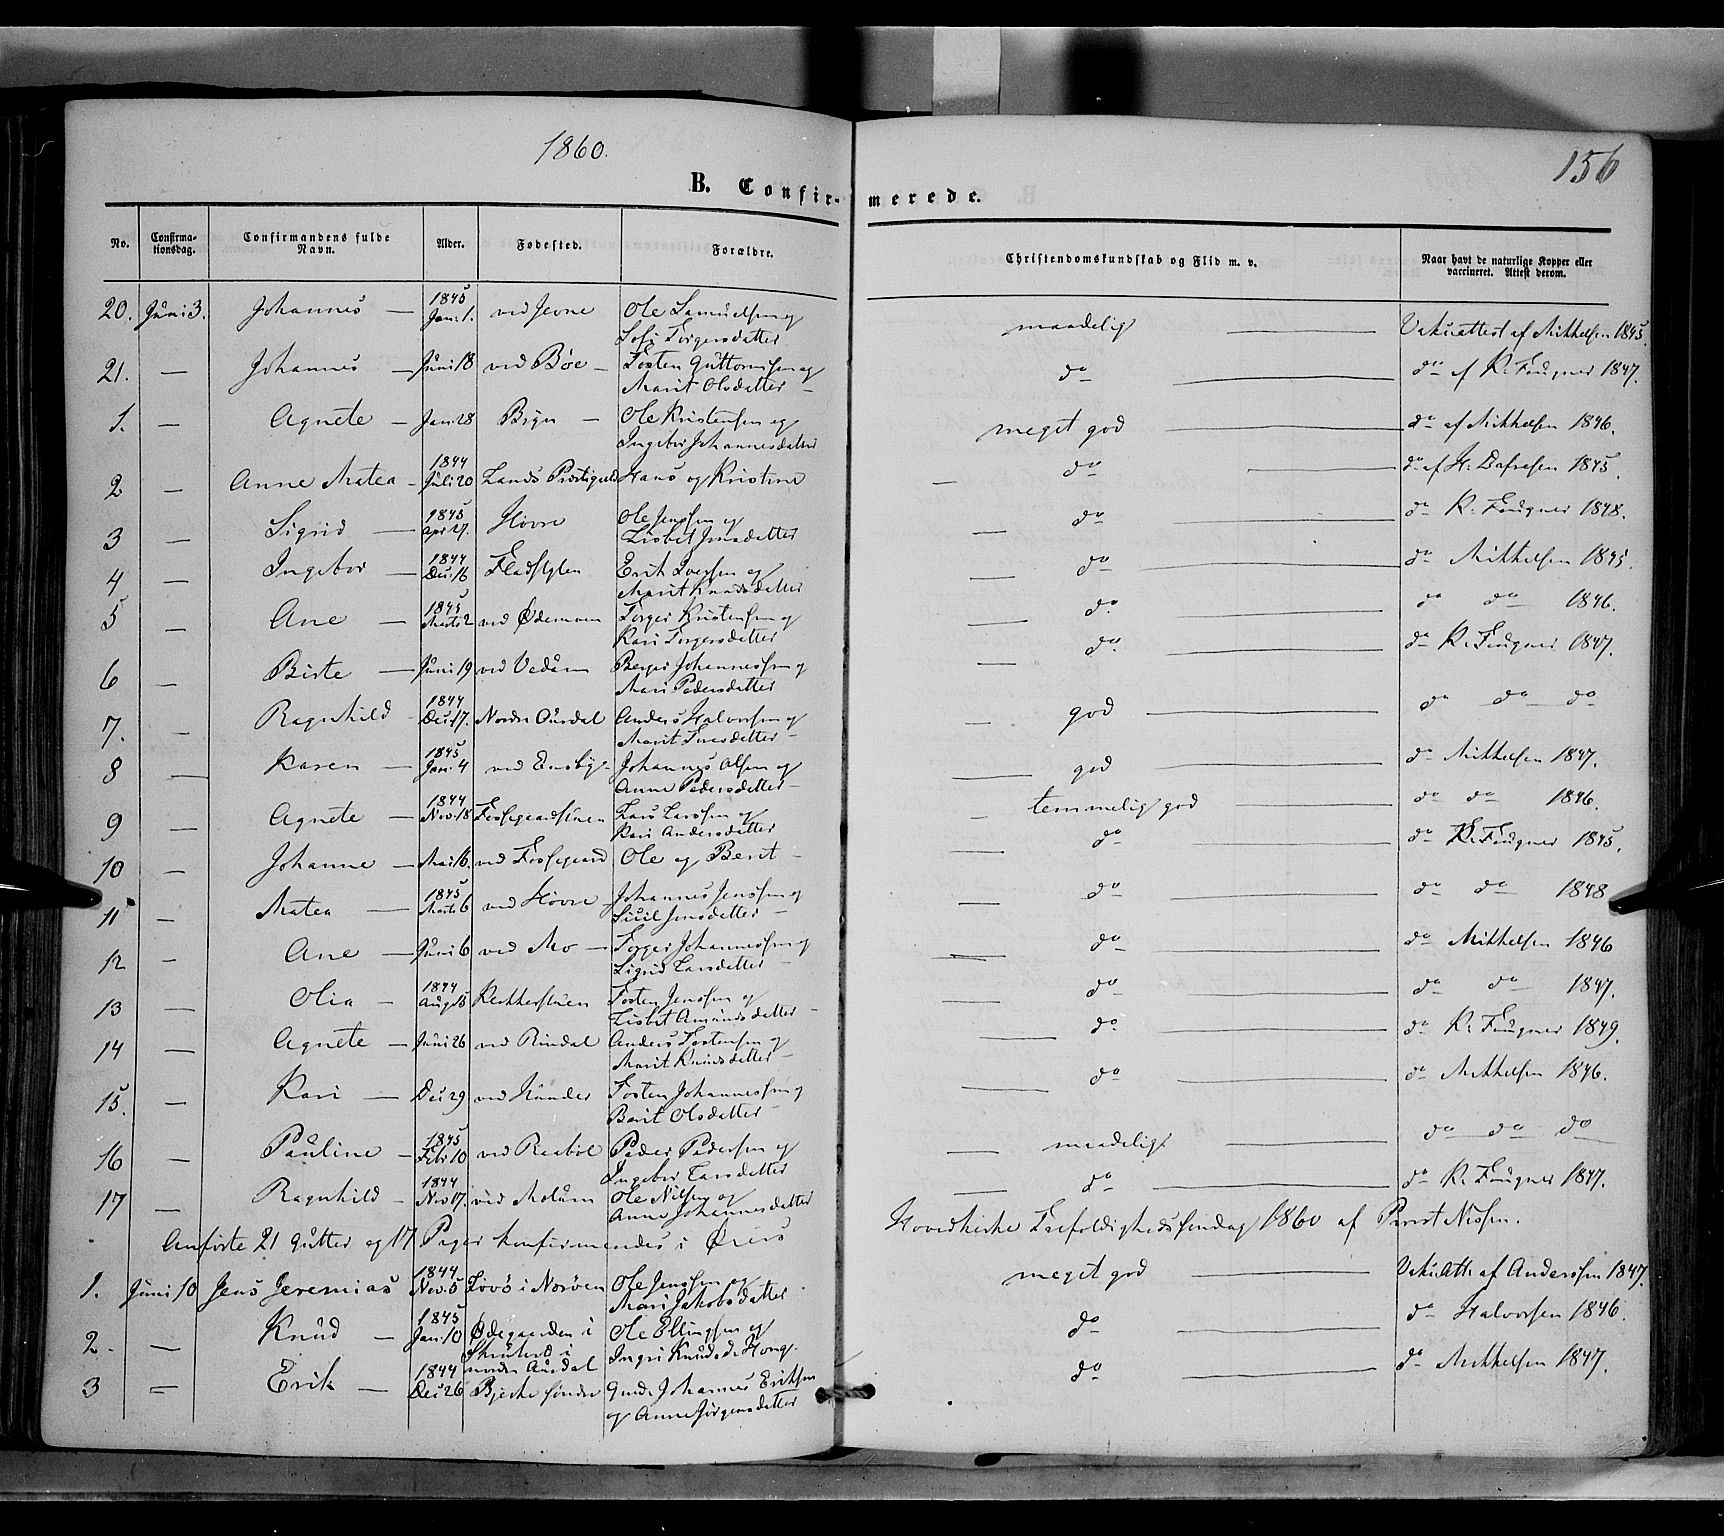 1860.
156
B. Confirmerede.
No. Confirmationsdag. Confirmandens fulde Navn. Alder. Fødested. Forældre. Christendomskundskab og Flid m. v. Naar havt de naturlige Kopper eller vaccineret. Attest derom.
20. Juni 3. Johannes — 1845 Jan. 1. ved Jevne Ole Samuelsen og Sofi Torgersdatter maadelig — Vakcattest af Mikkelsen 1845.
21. — Johannes — Juni 18 ved Böe — Tosten Guttormsen og Marit Olsdatter — do — do af K. Fougner 1847.
1. — Agnete — Jan. 28 — Ole Kristensen og Ingebor Johannesdatter meget god — do af Mikkelsen 1846.
2 — Anne Matea — 1844 Juli 20 Lands Præstigield Hans og Kristine — do — do af H. 1845.
3 — Sigrid — 1845 Apr 27. Hövre Ole Jenssen og Lisbet Jensdatter — do — do K. Fougner 1848.
4 — Ingebor — 1844 Dec. 16 Erik Iversen og Marit Knudsdatter — do — do Mikkelsen 1845.
5 — Ane — 1845 Marts 2 ved Torger Kristensen og Kari Torgersdatter — do — do do 1846.
6 — Birte — Juni 19 ved Berger Johannessen og Mari Pedersdatter — do — do K. Fougner 1847.
7. — Ragnhild — 1844 Dec. 17. Nordre Ourdal Anders Halvorsen og Marit — — god — do do do
8 — Karen — 1845 Jan. 4 ved Ensby — Johannes Olsen og Anne Pedersdatter — — god — do Mikkelsen 1847.
9 — Agnete — 1844 Nov. 18 Lars Larssen og Kari Andersdatter — temmelig god — do do 1846.
10 — Johanne — Mai 16. ved Fossegaard Ole og Berit — — do — do K. Fougner 1845.
11 — Matea — 1845 Marts 6 ved Hövre Johannes Jenssen og Sicil Jensdatter — — do — do do 1848
12 — Ane — Juni 6 ved Mo — Torger Johannessen og Sigrid Larsdatter — — do — do Mikkelsen 1846
13 — Olia — 1844 Aug. 15 Tosten Jenssen og Lisbet Amundsdatter — — do — do do 1847.
14 — Agnete — Juni 26 ved Rindal Anders Tostensen og Marit Knudsdatter — — do — do K. Fougner 1849.
15. — Kari — Dec 29 ved Hunder Tosten Johannessen og Berit Olsdatter — — do — do Mikkelsen 1846.
16 — Pauline — 1845 Febr 10 ved Peder Pedersen og Ingebor Larsdatter — maadelig — do do do
17 — Ragnhild — 1844 Nov 17. ved Ole Nilsen og Anne Johannesdatter — do — do K. Fougner 1847.
Anförte 21 Gutter og 17 Piger konfirmeredes i Öiers Hovedkirke Trefoldighedssöndag 1860 af Provst Nissen.
1. Juni 10 Jens Jeremias 1844 Nov. 5 Ole Jenssen og Mari Jakobsdatter meget god — VakcAtt. af Anderssen 1847.
2. — Knud — 1845 Jan. 10 Ödegaarden i i nordre Aurdal Ole Ellingsen og Ingri Knudsd. do — do Halvorsen 1846.
3 — Erik — 1844 Dec 26 Bjerke söndre Gmd. Johannes Eriksen og Anne Jörgensdatter do — do Mikkelsen 1847.